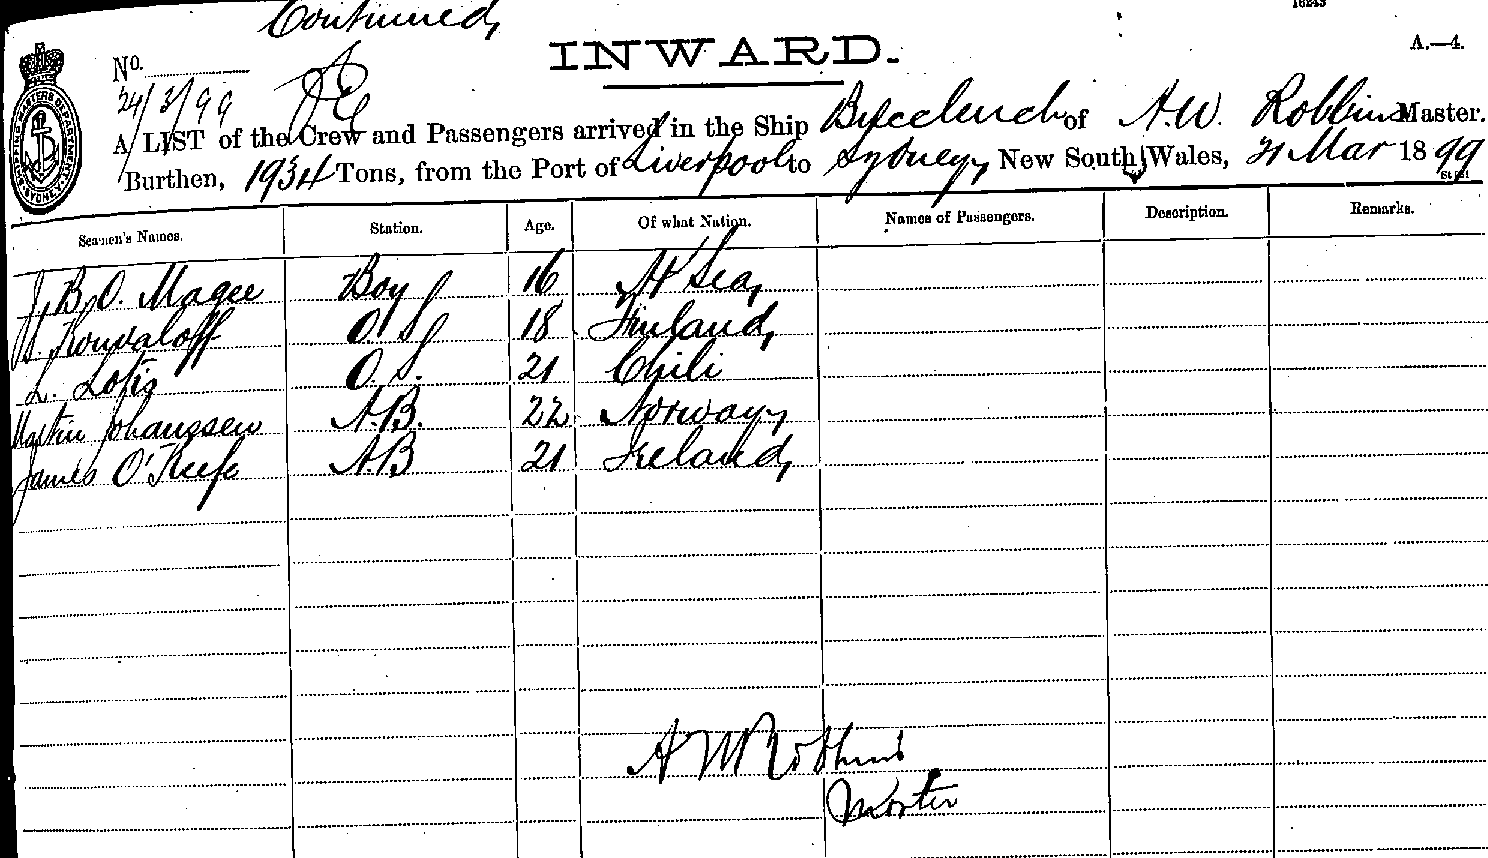 Continued,
16243
INWARD.
A.—4.
No.
24/3/99
A LIST of the Crew and Passengers arrived in the Ship Buccleuch of A.W. Robbins Master.
Burthen, 1934 Tons, from the Port of Liverpool to Sydney, New South Wales, 21 Mar 1899
Seamen's Names. Station. Age. Of what Nation. Names of Passengers. Description. Remarks.
J. B. O. Magee Boy 16 At Sea,
Konvaloff O.S. 18 Finland,
L. O.S. 21 Chili
Martin Johanssen A.B. 22 Norway,
James O'Keefe A.B 21 Ireland,
A W Robbins
Master